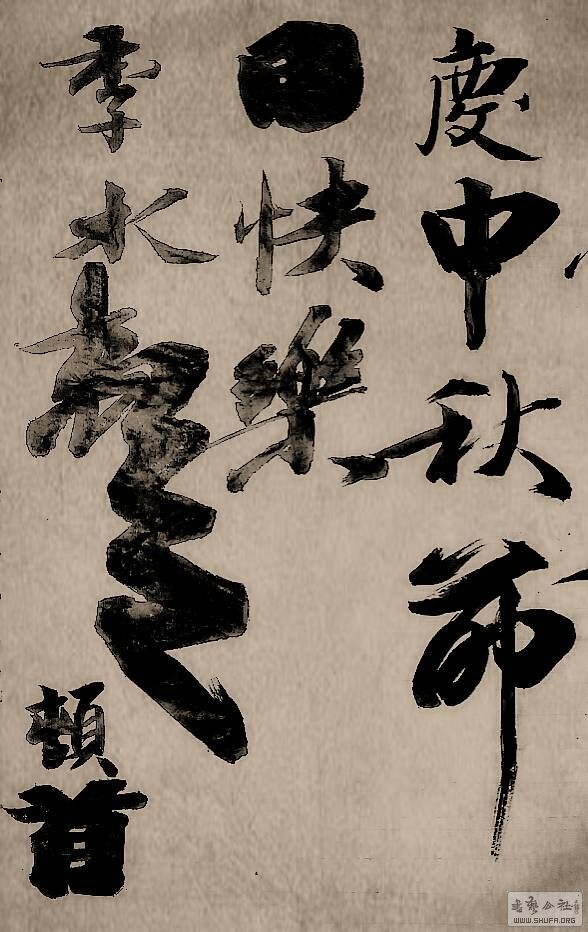 慶中秋節
日快樂
季水
頓首
書藝公社
WWW.SHUFA.ORG